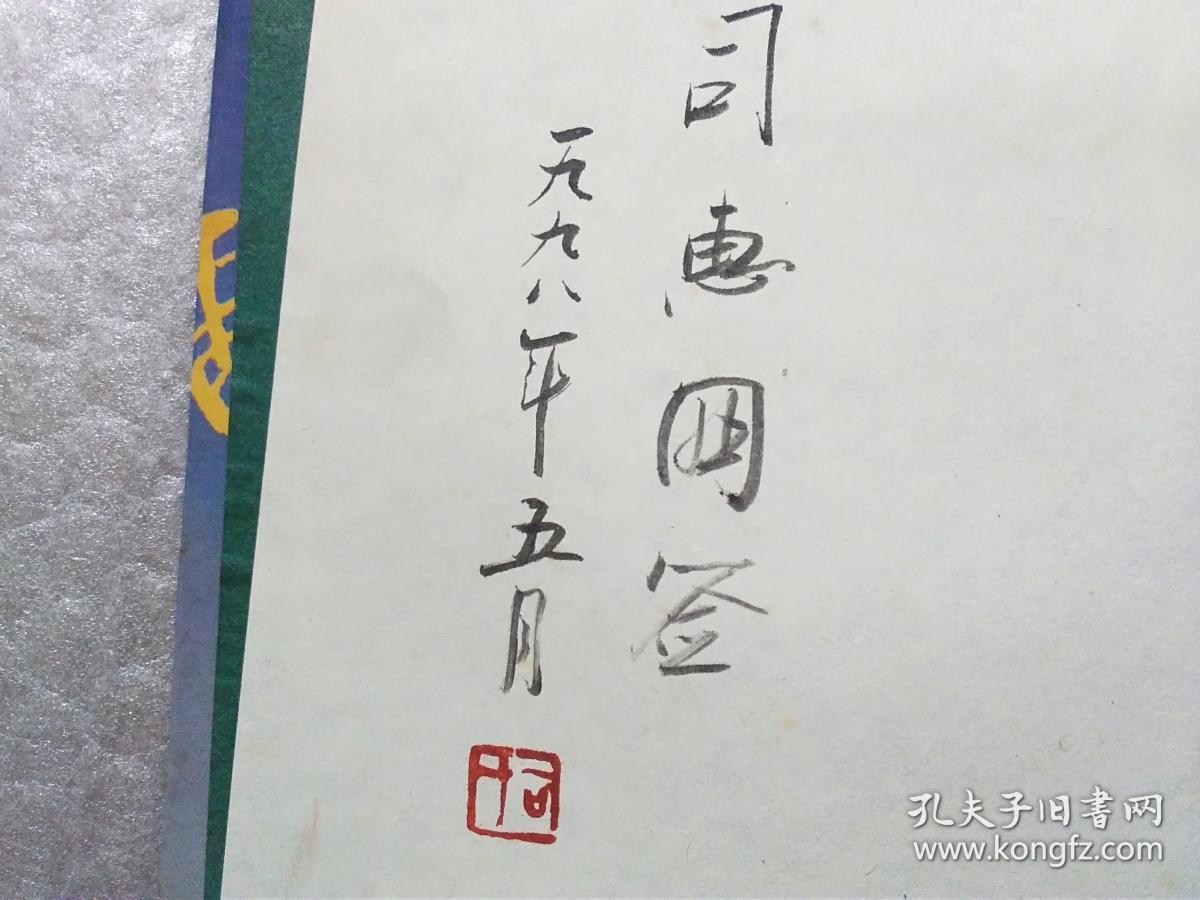 司惠国签
一九九八年五月
孔夫子旧书网
www.kongfz.com